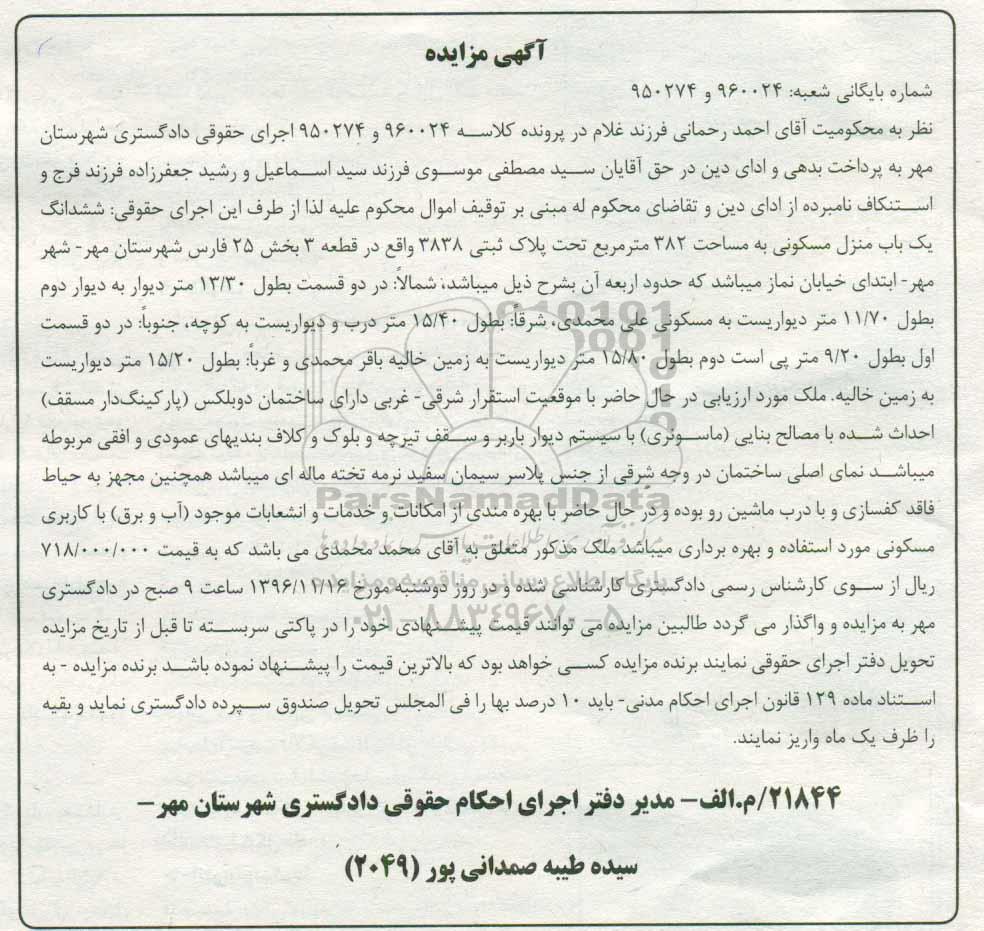 آگهی مزایده
شماره بایگانی شعبه: ۹۶۰۰۲۴ و ۹۵۰۲۷۴
نظر به محکومیت آقای احمد رحمانی فرزند غلام در پرونده کلاسه ۹۶۰۰۲۴ و ۹۵۰۲۷۴ اجرای حقوقی دادگستری شهرستان
مهر به پرداخت بدهی و ادای دین در حق آقایان سید مصطفی موسوی فرزند سید اسماعیل و رشید جعفرزاده فرزند فرج و
استنکاف نامبرده از ادای دین و تقاضای محکوم له مبنی بر توقیف اموال محکوم علیه لذا از طرف این اجرای حقوقی: ششدانگ
یک باب منزل مسکونی به مساحت ۳۸۲ مترمربع تحت پلاک ثبتی ۳۸۳۸ واقع در قطعه ۳ بخش ۲۵ فارس شهرستان مهر- شهر
مهر- ابتدای خیابان نماز میباشد که حدود اربعه آن بشرح ذیل میباشد، شمالاً: در دو قسمت بطول ۱۳/۳۰ متر دیوار به دیوار دوم
بطول ۱۱/۷۰ متر دیواریست به مسکونی علی محمدی، شرقاً: بطول ۱۵/۴۰ متر درب و دیواریست به کوچه، جنوباً: در دو قسمت
اول بطول ۹/۲۰ متر پی است دوم بطول ۱۵/۸۰ متر دیواریست به زمین خالیه باقر محمدی و غرباً: بطول ۱۵/۲۰ متر دیواریست
به زمین خالیه. ملک مورد ارزیابی در حال حاضر با موقعیت استقرار شرقی- غربی دارای ساختمان دوبلکس (پارکینگ‌دار مسقف)
احداث شده با مصالح بنایی (ماسونری) با سیستم دیوار باربر و سقف تیرچه و بلوک و کلاف بندیهای عمودی و افقی مربوطه
میباشد نمای اصلی ساختمان در وجه شرقی از جنس پلاسر سیمان سفید نرمه تخته ماله ای میباشد همچنین مجهز به حیاط
فاقد کفسازی و با درب ماشین رو بوده و در حال حاضر با بهره مندی از امکانات و خدمات و انشعابات موجود (آب و برق) با کاربری
مسکونی مورد استفاده و بهره برداری میباشد ملک مذکور متعلق به آقای محمد محمدی می باشد که به قیمت ۷۱۸/۰۰۰/۰۰۰
ریال از سوی کارشناس رسمی دادگستری کارشناسی شده و در روز دوشنبه مورخ ۱۳۹۶/۱۱/۱۶ ساعت ۹ صبح در دادگستری
مهر به مزایده و واگذار می گردد طالبین مزایده می توانند قیمت پیشنهادی خود را در پاکتی سربسته تا قبل از تاریخ مزایده
تحویل دفتر اجرای حقوقی نمایند برنده مزایده کسی خواهد بود که بالاترین قیمت را پیشنهاد نموده باشد برنده مزایده - به
استناد ماده ۱۲۹ قانون اجرای احکام مدنی- باید ۱۰ درصد بها را فی المجلس تحویل صندوق سپرده دادگستری نماید و بقیه
را ظرف یک ماه واریز نمایند.
۲۱۸۴۴/م.الف- مدیر دفتر اجرای احکام حقوقی دادگستری شهرستان مهر-
سیده طیبه صمدانی پور (۲۰۴۹)
ParsNamadData
پایگاه اطلاع رسانی مناقصه و مزایده
۰۲۱-۸۸۳۴۹۶۷۰-۵